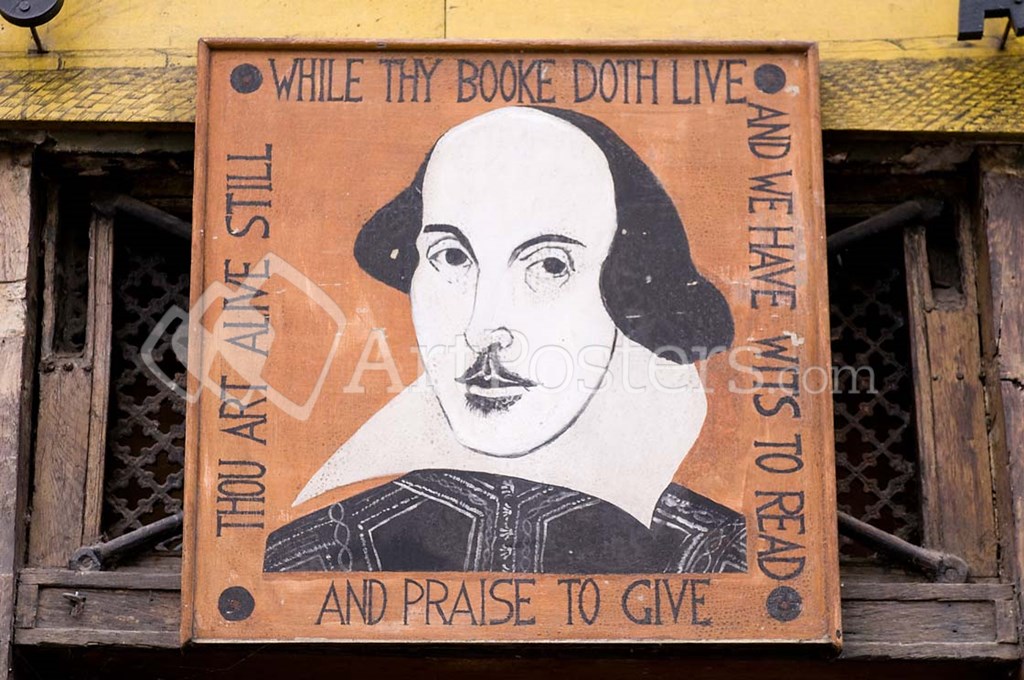 THOU ART ALIVE STILL
WHILE THY BOOKE DOTH LIVE
AND WE HAVE WITS TO READ
AND PRAISE TO GIVE
ArtPosters.com